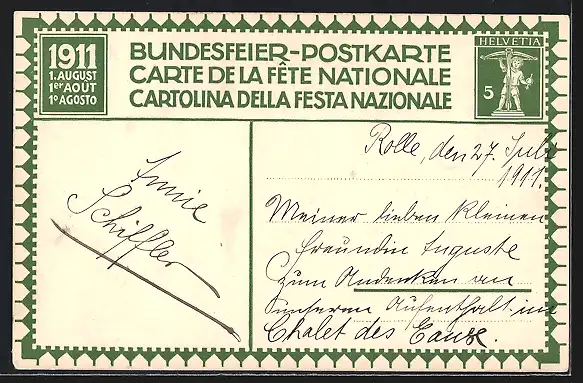 1911
1. AUGUST
1er AOUT
1º AGOSTO
BUNDESFEIER-POSTKARTE
CARTE DE LA FÊTE NATIONALE
CARTOLINA DELLA FESTA NAZIONALE
HELVETIA
5
Annie
Schiffler
Rolle, den 27. Juli
1911.
Meiner lieben kleinen
Freundin Auguste
zum Andenken an
unseren Aufenthalt im
Chalet des